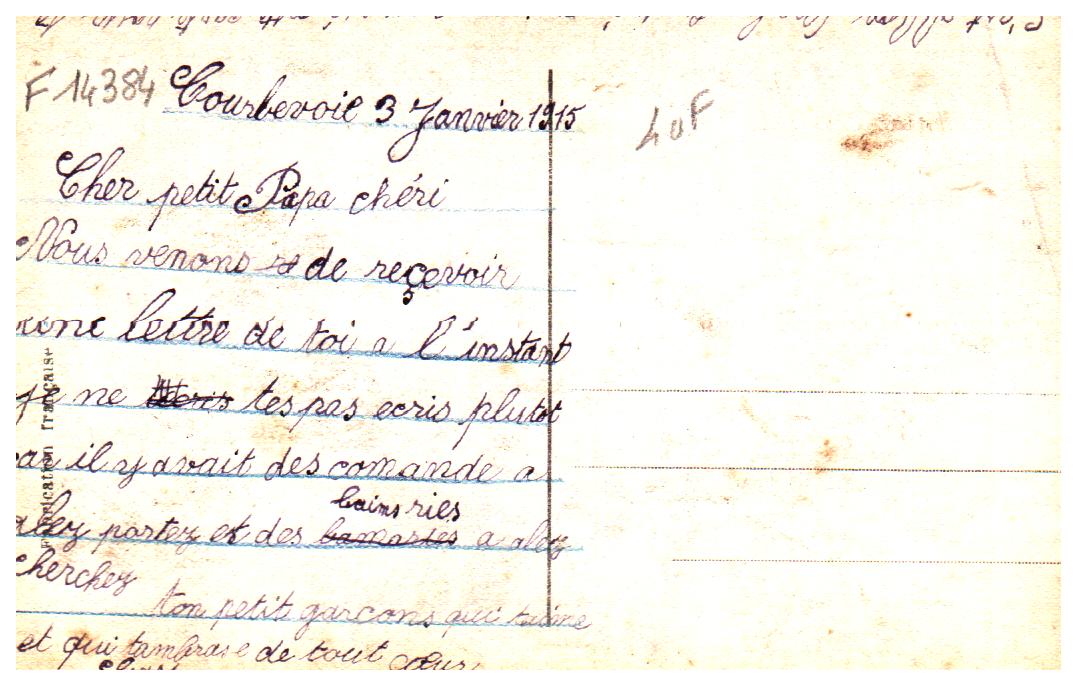 F 14384
Courbevoie 3 Janvier 1915
4 uF
Cher petit Papa chéri
Nous venons de reçevoir
une lettre de toi a l'instant
je ne tes pas ecris plutot
car il y avait des comande a
alez portez et des bains ries a alez
cherchez
ton petit garcons qui taime
et qui tambrase de tout cœur
Fabrication française